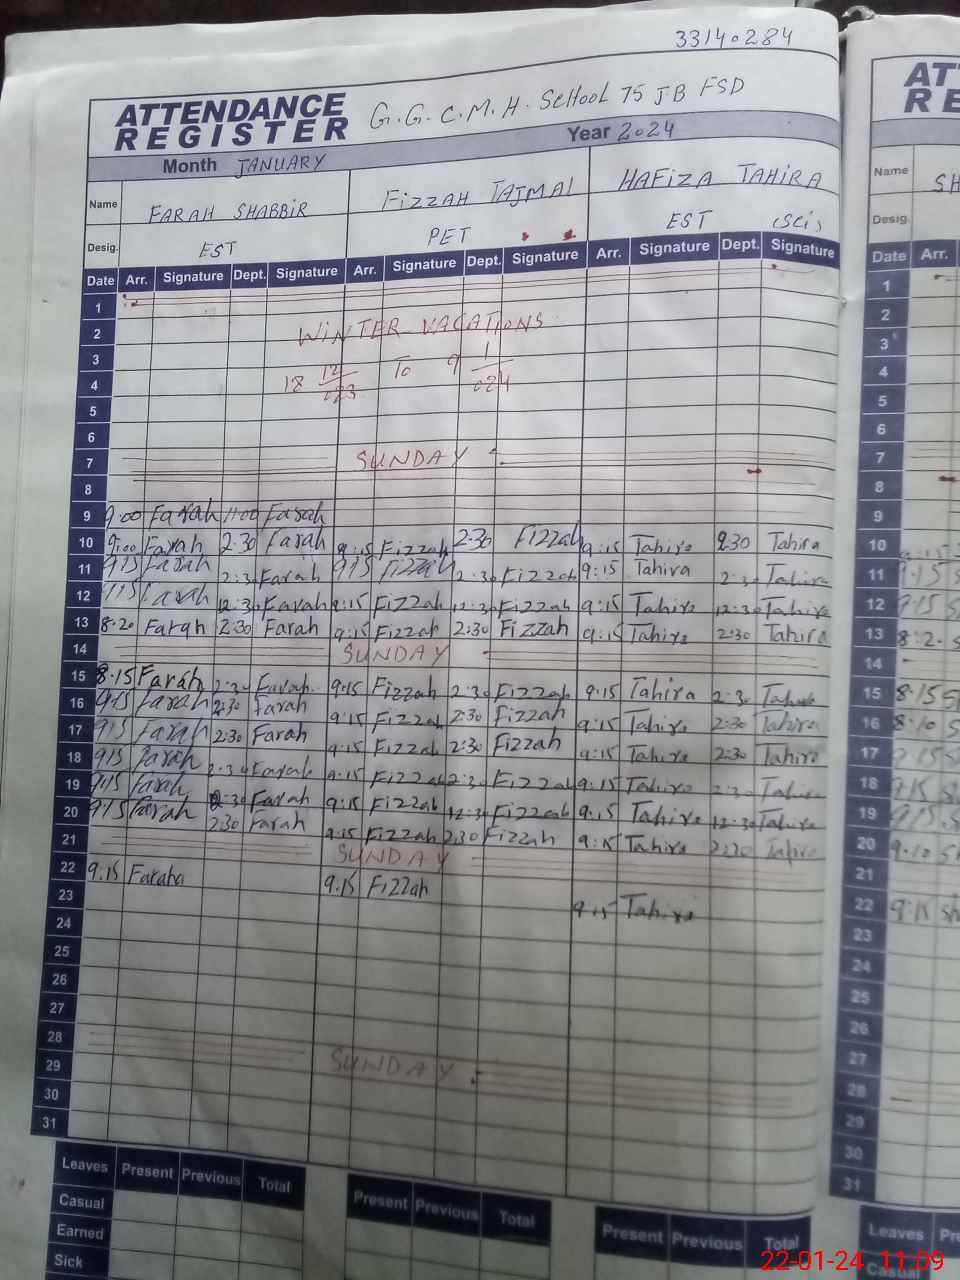 33140284
ATTENDANCE REGISTER G.G.C.M.H. SCHOOL 75 JB FSD
Month JANUARY Year 2024
Name FARAH SHABBIR FIZZAH TAJMAL HAFIZA TAHIRA
Desig. EST PET EST (SCi)
Date Arr. Signature Dept. Signature Arr. Signature Dept. Signature Arr. Signature Dept. Signature
1
2 WINTER VACATIONS
3
4 18 12/023 To 9 1/024
5
6
7 SUNDAY
8
9 9:00 Farah 11:00 Farah
10 9:00 Farah 2:30 Farah 9:15 Fizzah 2:30 Fizzah 9:15 Tahira 2:30 Tahira
11 9:15 Farah 2:30 Farah 9:15 Fizzah 2:30 Fizzah 9:15 Tahira 2:30 Tahira
12 9:15 Farah 12:30 Farah 9:15 Fizzah 12:30 Fizzah 9:15 Tahira 12:30 Tahira
13 8:20 Farah 2:30 Farah 9:15 Fizzah 2:30 Fizzah 9:15 Tahira 2:30 Tahira
14 SUNDAY
15 8:15 Farah 2:30 Farah 9:15 Fizzah 2:30 Fizzah 9:15 Tahira 2:30 Tahira
16 9:15 Farah 2:30 Farah 9:15 Fizzah 2:30 Fizzah 9:15 Tahira 2:30 Tahira
17 9:15 Farah 2:30 Farah 9:15 Fizzah 2:30 Fizzah 9:15 Tahira 2:30 Tahira
18 9:15 Farah 2:30 Farah 9:15 Fizzah 2:30 Fizzah 9:15 Tahira 2:30 Tahira
19 9:15 Farah 12:30 Farah 9:15 Fizzah 12:30 Fizzah 9:15 Tahira 12:30 Tahira
20 9:15 Farah 2:30 Farah 9:15 Fizzah 2:30 Fizzah 9:15 Tahira 2:30 Tahira
21 SUNDAY
22 9:15 Farah 9:15 Fizzah 9:15 Tahira
23
24
25
26
27
28 SUNDAY
29
30
31
Leaves Present Previous Total Present Previous Total Present Previous Total
Casual
Earned
Sick
AT
RE
Name SH
Desig.
Date Arr.
1
2
3
4
5
6
7
8
9
10
11 9:15 S
12 9:15 S
13 8:20 S
14
15 8:15 S
16 8:10 S
17 9:15 S
18 9:15 S
19 9:15 S
20 9:10 S
21
22 9:15 Sh
23
24
25
26
27
28
29
30
31
Leaves Pre
Casual
22-01-24 11:09